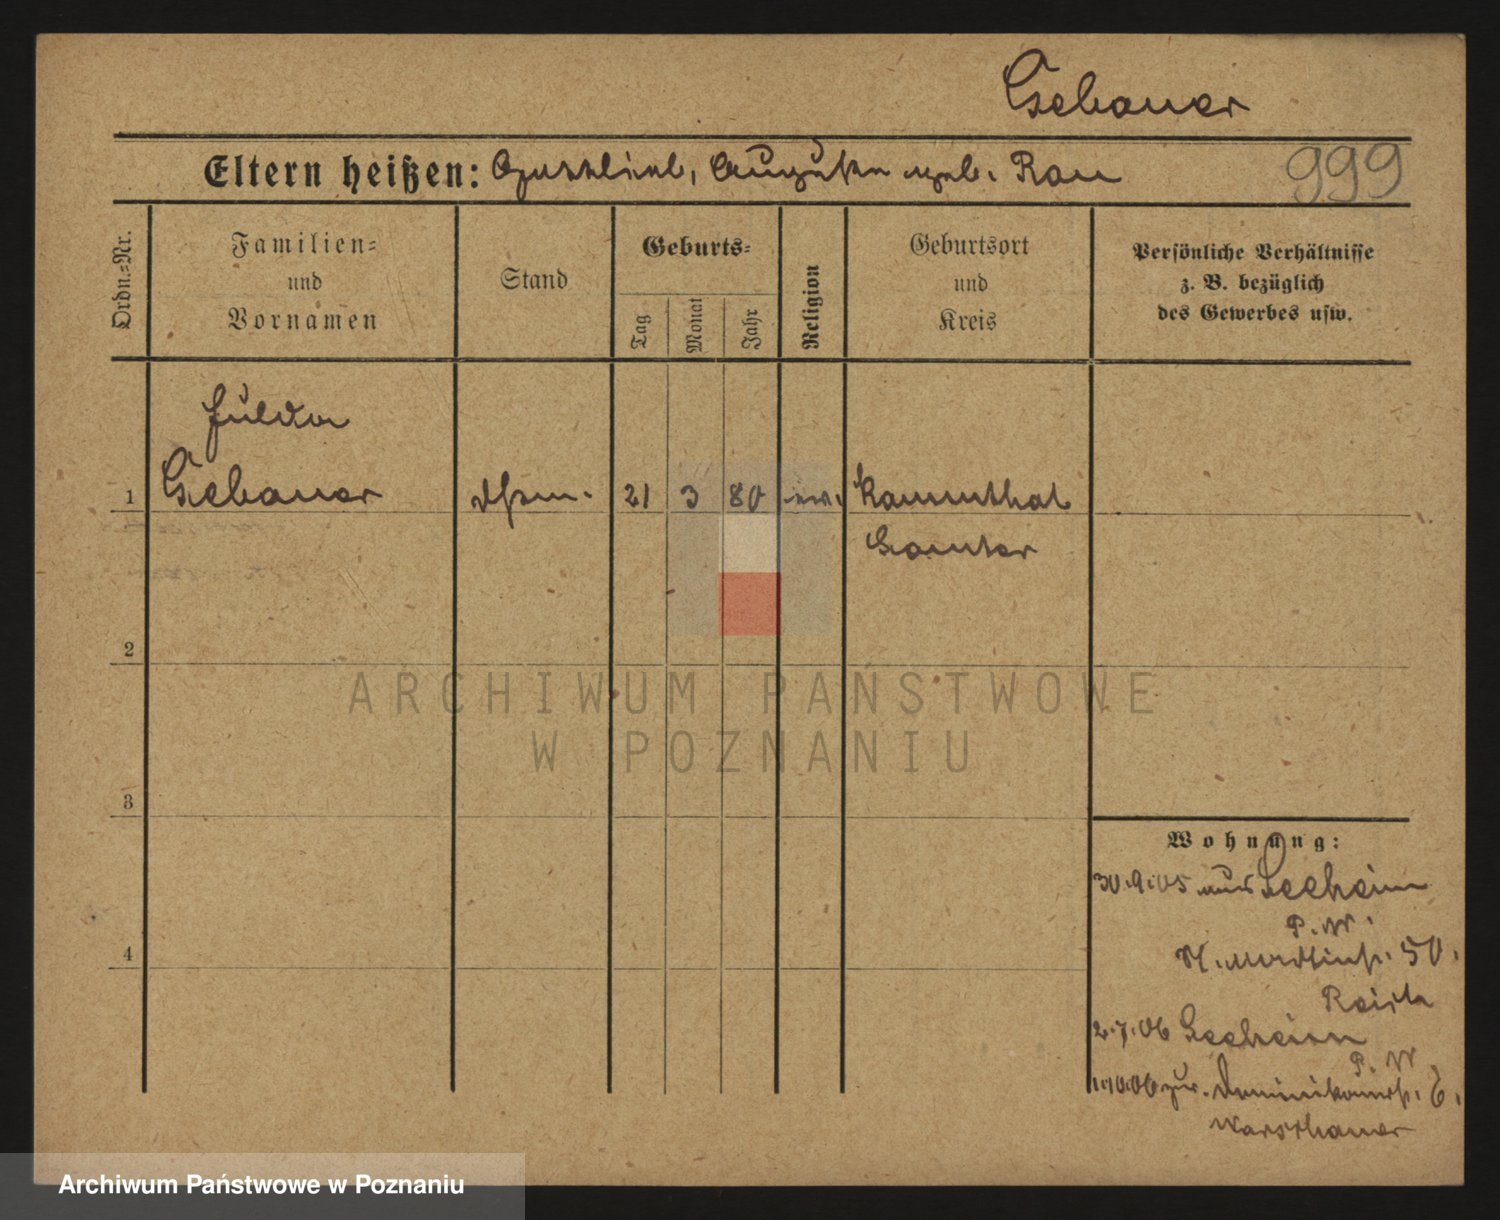 Gebauer
Eltern heißen: Gottlieb, Auguste geb. Rau
999
Ordn.-Nr.
Familien-
und
Vornamen
Stand
Geburts-
Tag
Monat
Jahr
Religion
Geburtsort
und
Kreis
Persönliche Verhältnisse
z. B. bezüglich
des Gewerbes usw.
Hulda
1 Gebauer 21 3 80 ev. Kammthal
Samter
2
3
4
Wohnung:
30.9.05 aus Seeheim
P. W.
St. Martinstr. 50.
2.7.06 Seeheim
P. W.
1.10.06 zur. Dominikanerstr. 6.
Warschauer
ARCHIWUM PAŃSTWOWE
W POZNANIU
Archiwum Państwowe w Poznaniu